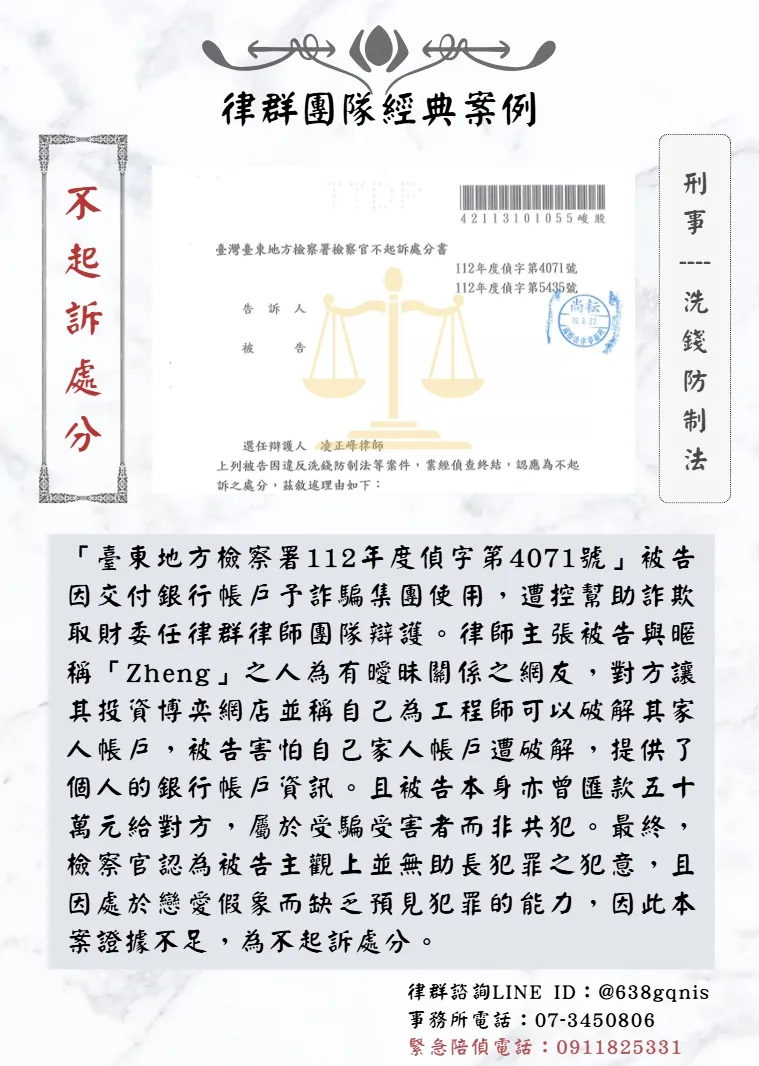 律群團隊經典案例
不起訴處分
刑事----洗錢防制法
42113101055峻股
臺灣臺東地方檢察署檢察官不起訴處分書
112年度偵字第4071號
112年度偵字第5435號
告訴人
尚耘
被告
選任辯護人 凌正峰律師
上列被告因違反洗錢防制法等案件,業經偵查終結,認應為不起
訴之處分,茲敘述理由如下:
「臺東地方檢察署112年度偵字第4071號」被告
因交付銀行帳戶予詐騙集團使用,遭控幫助詐欺
取財委任律群律師團隊辯護。律師主張被告與暱
稱「Zheng」之人為有曖昧關係之網友,對方讓
其投資博奕網店並稱自己為工程師可以破解其家
人帳戶,被告害怕自己家人帳戶遭破解,提供了
個人的銀行帳戶資訊。且被告本身亦曾匯款五十
萬元給對方,屬於受騙受害者而非共犯。最終,
檢察官認為被告主觀上並無助長犯罪之犯意,且
因處於戀愛假象而缺乏預見犯罪的能力,因此本
案證據不足,為不起訴處分。
律群諮詢LINE ID:@638gqnis
事務所電話:07-3450806
緊急陪偵電話:0911825331